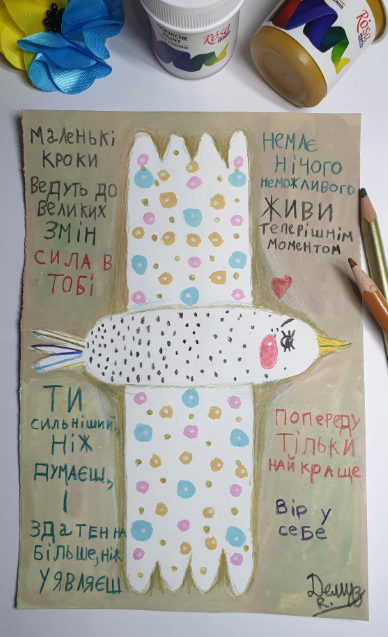 Rosa
Rosa
маленькі
кроки
ведуть до
великих
змін
сила в
тобі
немає
нічого
неможливого
живи
теперішнім
моментом
Ти
сильніший,
ніж
думаєш,
і
здатен на
більше, ніж
уявляєш
попереду
тільки
найкраще
Вір у
себе
R.